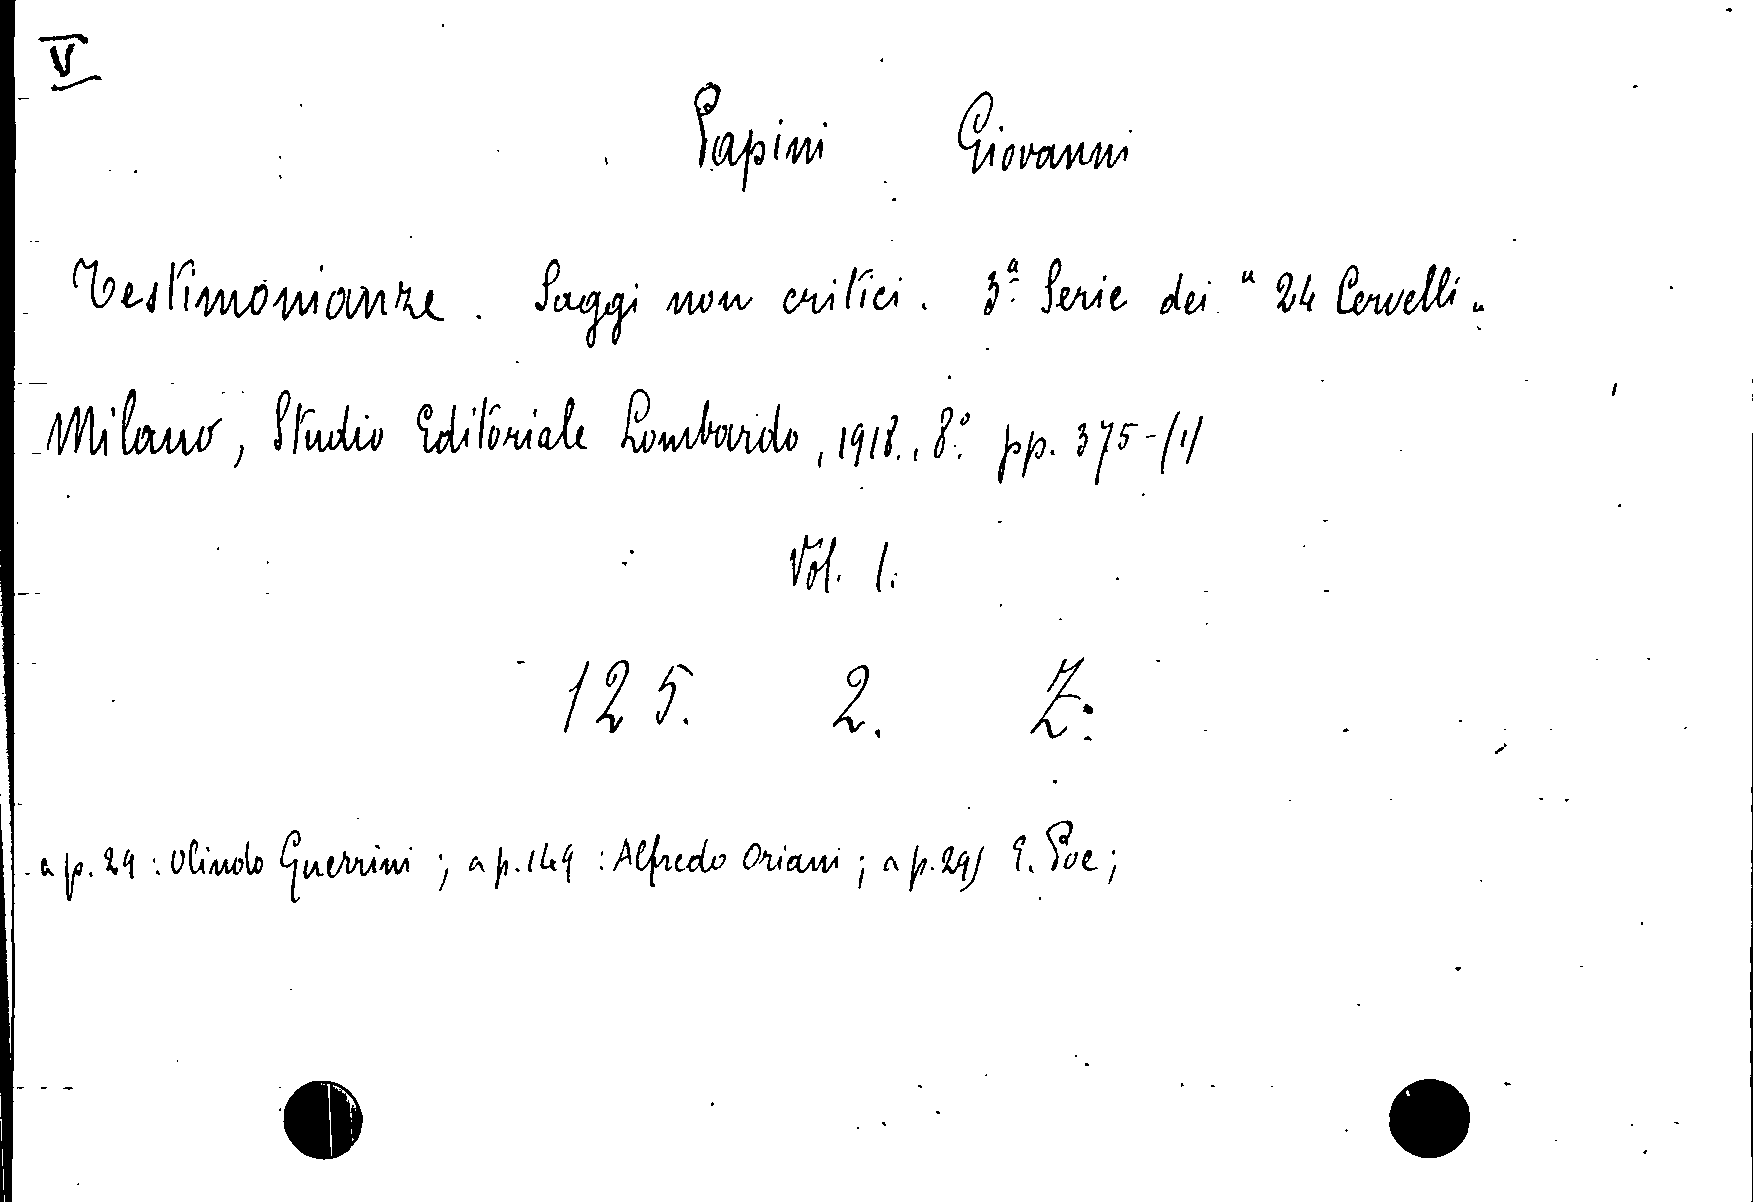 V
Papini Giovanni
Testimonianze. Saggi non critici. 3ª Serie dei "24 Cervelli"
Milano, Studio Editoriale Lombardo, 1918., 8º. pp. 375-(1)
Vol. 1.
125. 2. Z.
a p. 29: Olindo Guerrini; a p. 149: Alfredo Oriani; a p. 291 E. Poe;